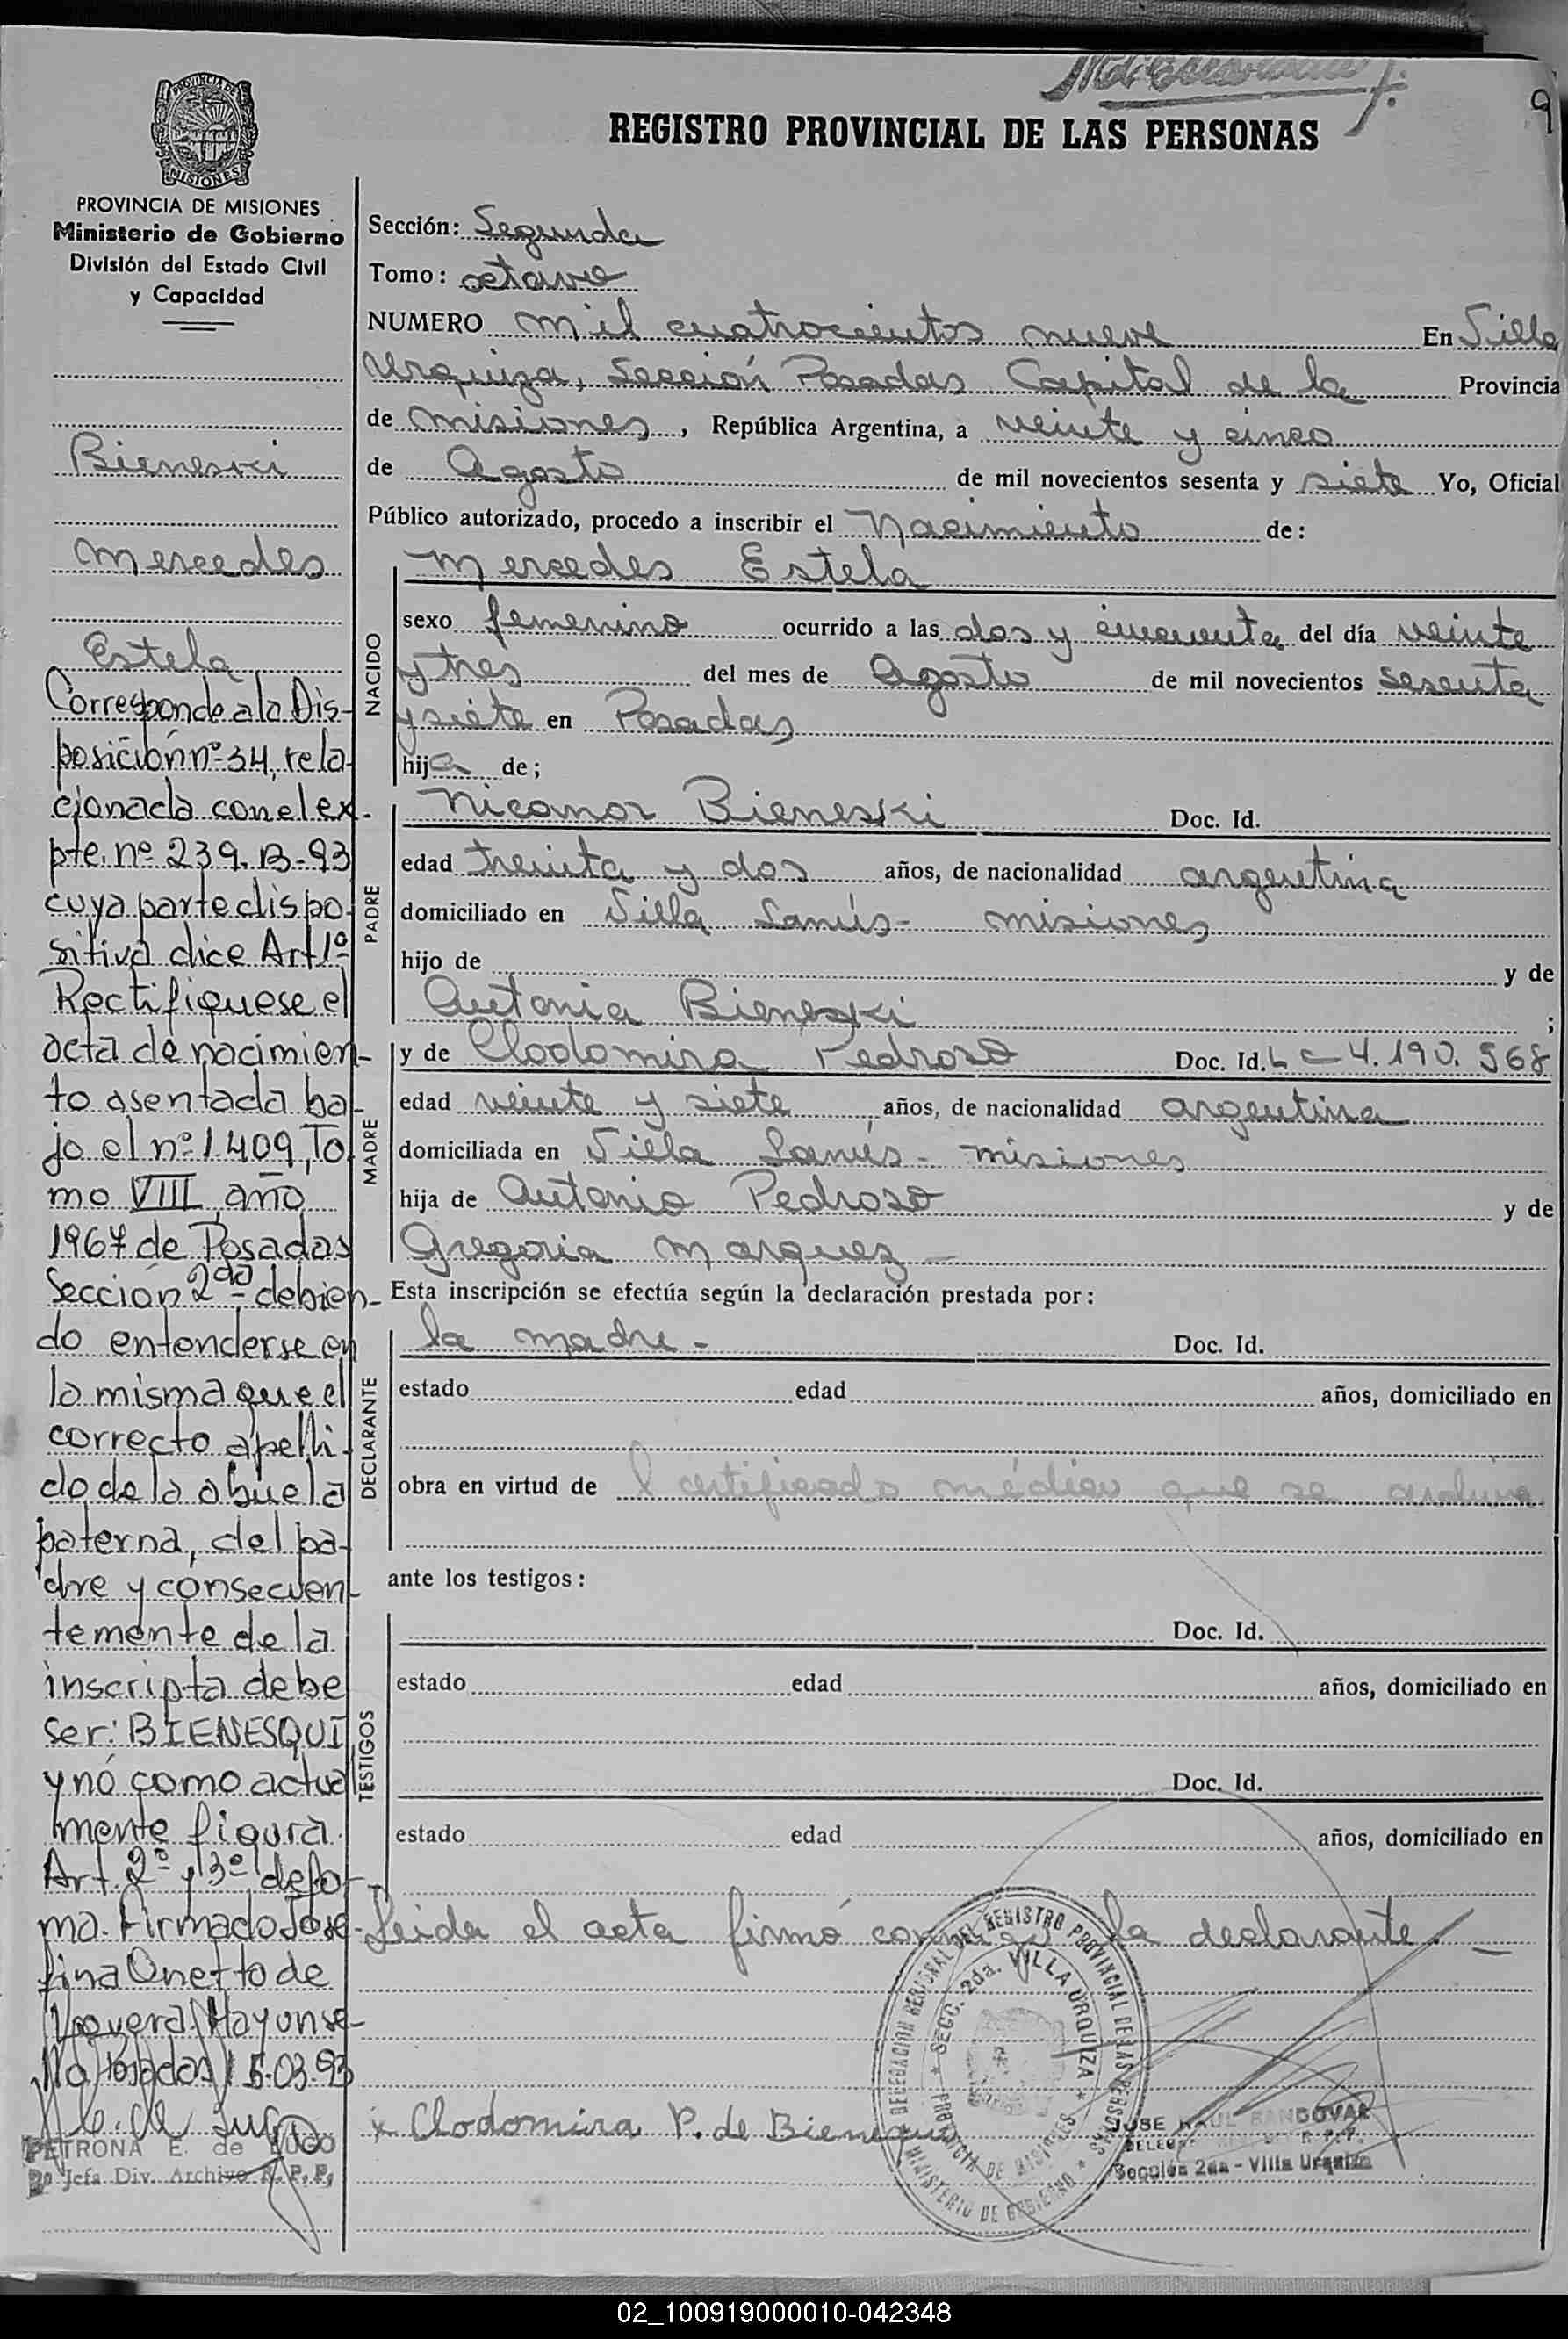 9
REGISTRO PROVINCIAL DE LAS PERSONAS
PROVINCIA DE
MISIONES
PROVINCIA DE MISIONES
Ministerio de Gobierno
División del Estado Civil
y Capacidad
Bieneski
Mercedes
Estela
Corresponde a la Dis-
posición nº 34, rela
cionada con el ex-
pte. nº 239. B-93
cuya parte dispo-
sitiva dice Art 1º
Rectifiquese el
acta de nacimien-
to asentada ba-
jo el nº 1409, To
mo VIII, año
1967 de Posadas
Sección 2da - debien-
do entenderse en
la misma que el
correcto apelli-
do de la abuela
paterna, del pa-
dre y consecuen-
temente de la
inscripta debe
ser: BIENESQUI
y no como actual
mente figura.
Art. 2º y 3º de for-
ma. Firmado José-
fina Onetto de
Hay un se-
llo Posadas 15-03-93
PETRONA E. de LUGO
Jefa Div. Archivo R. P. P.
Sección: Segunda
Tomo: octavo
NUMERO mil cuatrocientos nueve En Villa
Urquiza, Sección Posadas Capital de la Provincia
de Misiones, República Argentina, a veinte y cinco
de Agosto de mil novecientos sesenta y siete Yo, Oficial
Público autorizado, procedo a inscribir el Nacimiento de:
NACIDO
Mercedes Estela
sexo femenino ocurrido a las dos y cincuenta del día veinte
y tres del mes de Agosto de mil novecientos sesenta
y siete en Posadas
hija de;
PADRE
Nicanor Bieneski Doc. Id.
edad treinta y dos años, de nacionalidad argentina
domiciliado en Villa Lanús - Misiones
hijo de y de
Antonia Bieneski ;
MADRE
y de Clodomira Pedroso Doc. Id. L C - 4.190.568
edad veinte y siete años, de nacionalidad argentina
domiciliada en Villa Lanús - Misiones
hija de Antonio Pedroso y de
Gregoria Marquez
Esta inscripción se efectúa según la declaración prestada por:
DECLARANTE
la madre - Doc. Id.
estado edad años, domiciliado en
obra en virtud de l certificado médico que se archiva
ante los testigos:
TESTIGOS
Doc. Id.
estado edad años, domiciliado en
Doc. Id.
estado edad años, domiciliado en
Leida el acta firmó conmigo la declarante. -
DELEGACION REGIONAL DEL REGISTRO PROVINCIAL DE LAS PERSONAS
SECC. 2da. VILLA URQUIZA
PROVINCIA DE MISIONES
MINISTERIO DE GOBIERNO
x Clodomira P. de Bienesqui
JOSE RAUL SANDOVAR
Sección 2da - Villa Urquiza
02_100919000010-042348